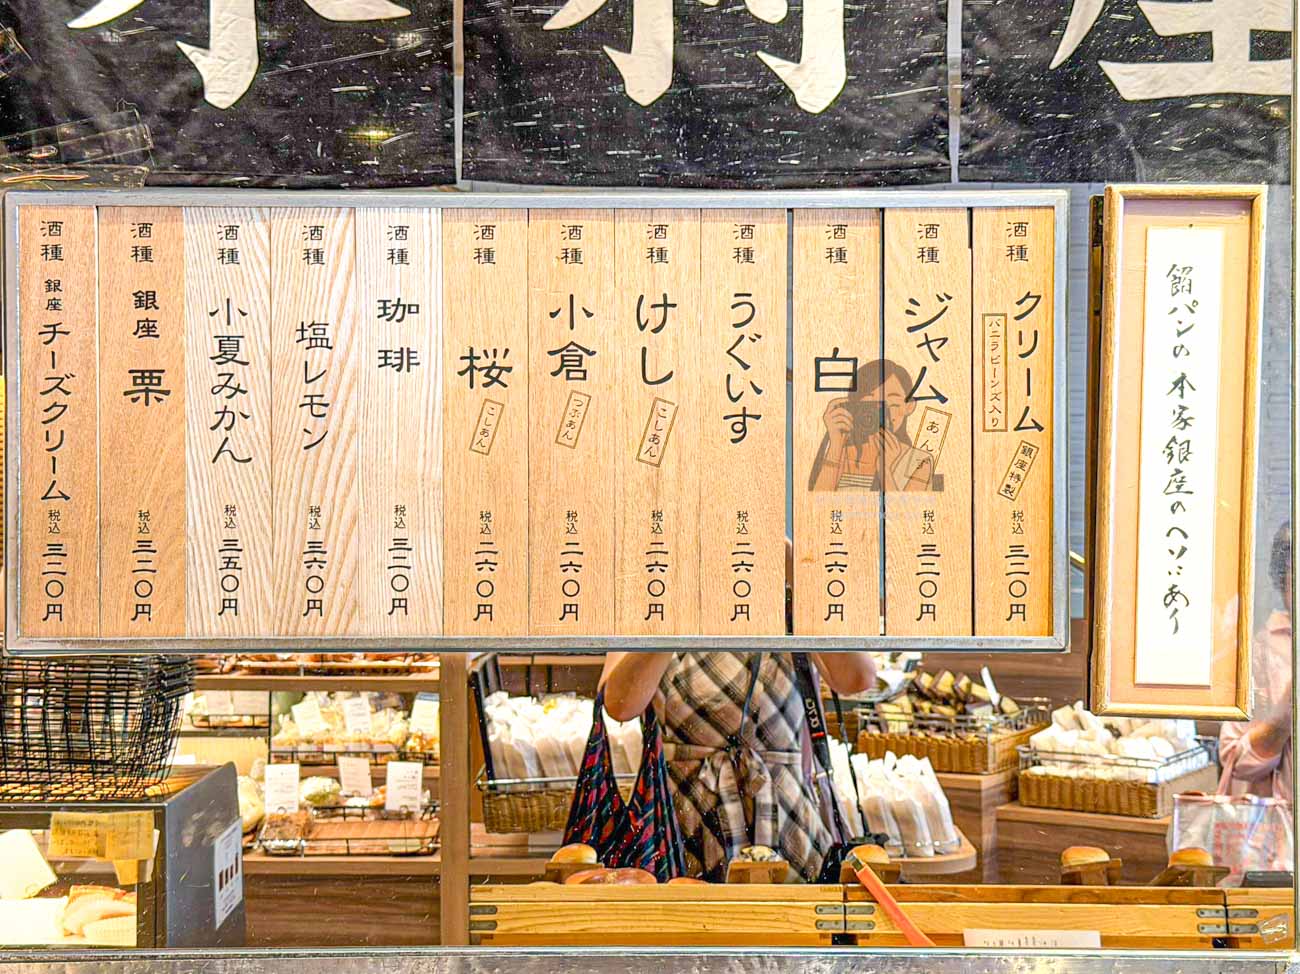 酒種 クリーム バニラビーンズ入り 銀座特製 税込 三二〇円
酒種 ジャム あんず 税込 三二〇円
酒種 白 税込 二六〇円
酒種 うぐいす 税込 二六〇円
酒種 けし こしあん 税込 二六〇円
酒種 小倉 つぶあん 税込 二六〇円
酒種 桜 こしあん 税込 二六〇円
酒種 珈琲 税込 三二〇円
酒種 塩レモン 税込 三六〇円
酒種 小夏みかん 税込 三五〇円
酒種 銀座 栗 税込 三二〇円
酒種 銀座 チーズクリーム 税込 三二〇円
餡パンの本家銀座のヘソにあり